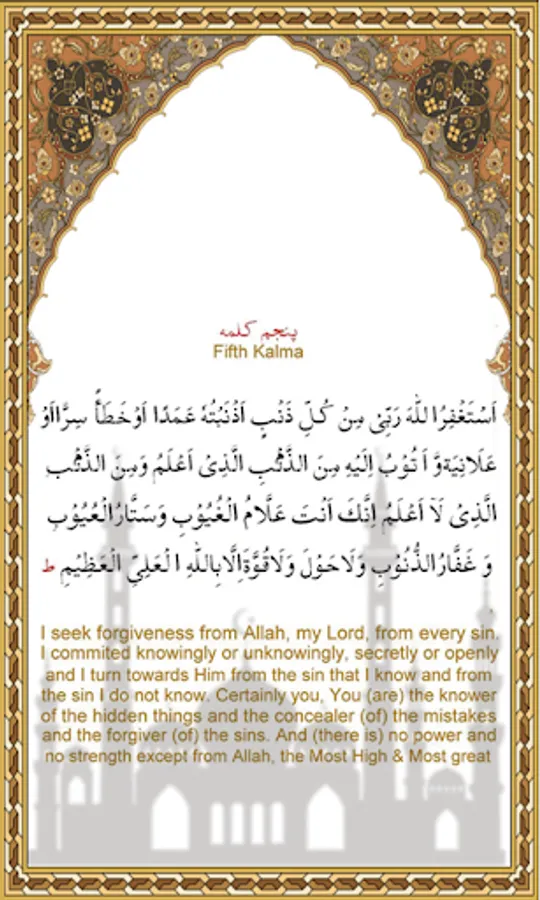 پنجم کلمہ
Fifth Kalma
اَسْتَغْفِرُا للّٰهَ رَبِّىْ مِنْ كُلِّ ذَنْۢبٍ اَذْنَبْتُهٗ عَمَدًا اَوْ خَطَأً سِرًّا اَوْ
عَلَانِيَةً وَّ اَ تُوْبُ اِلَيْهِ مِنَ الذَّنْۢبِ الَّذِىْ اَعْلَمُ وَ مِنَ الذَّنْۢبِ
الَّذِىْ لَآ اَعْلَمُ اِنَّكَ اَنْتَ عَلَّامُ الْغُيُوْبِ وَ سَتَّارُ الْعُيُوْبِ
وَ غَفَّارُ الذُّنُوْبِ وَ لَا حَوْلَ وَ لَا قُوَّةَ اِلَّا بِاللّٰهِ ا لْعَلِىِّ الْعَظِيْمِ ط
I seek forgiveness from Allah, my Lord, from every sin.
I commited knowingly or unknowingly, secretly or openly
and I turn towards Him from the sin that I know and from
the sin I do not know. Certainly you, You (are) the knower
of the hidden things and the concealer (of) the mistakes
and the forgiver (of) the sins. And (there is) no power and
no strength except from Allah, the Most High & Most great